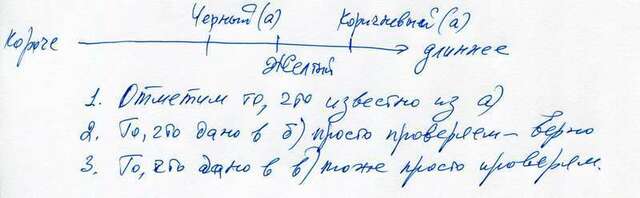 Черный (а) Коричневый (а)
короче длиннее
Желтый
1. Отметим то, что известно из а)
2. То, что дано в б) просто проверяем — верно
3. То, что дано в в) тоже просто проверяем.